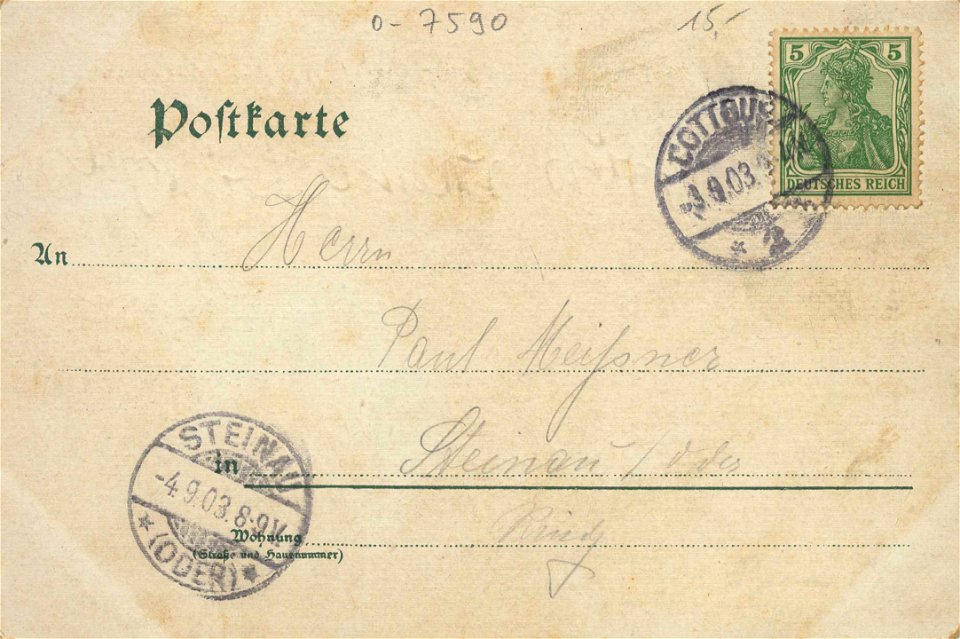 0-7590 15,-
5 5
DEUTSCHES REICH
COTTBUS
-3.9.03.
* 2
Postkarte
An Herrn
Paul Meißner
in Steinau / Oder
Wohnung Ring
(Straße und Hausnummer)
STEINAU
-4.9.03.8-9V.
* (ODER) *